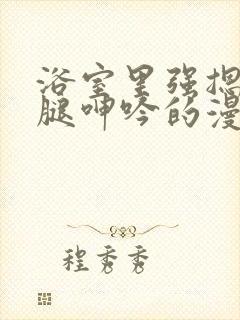 浴室里强揌
腿呻吟的漫
程秀秀